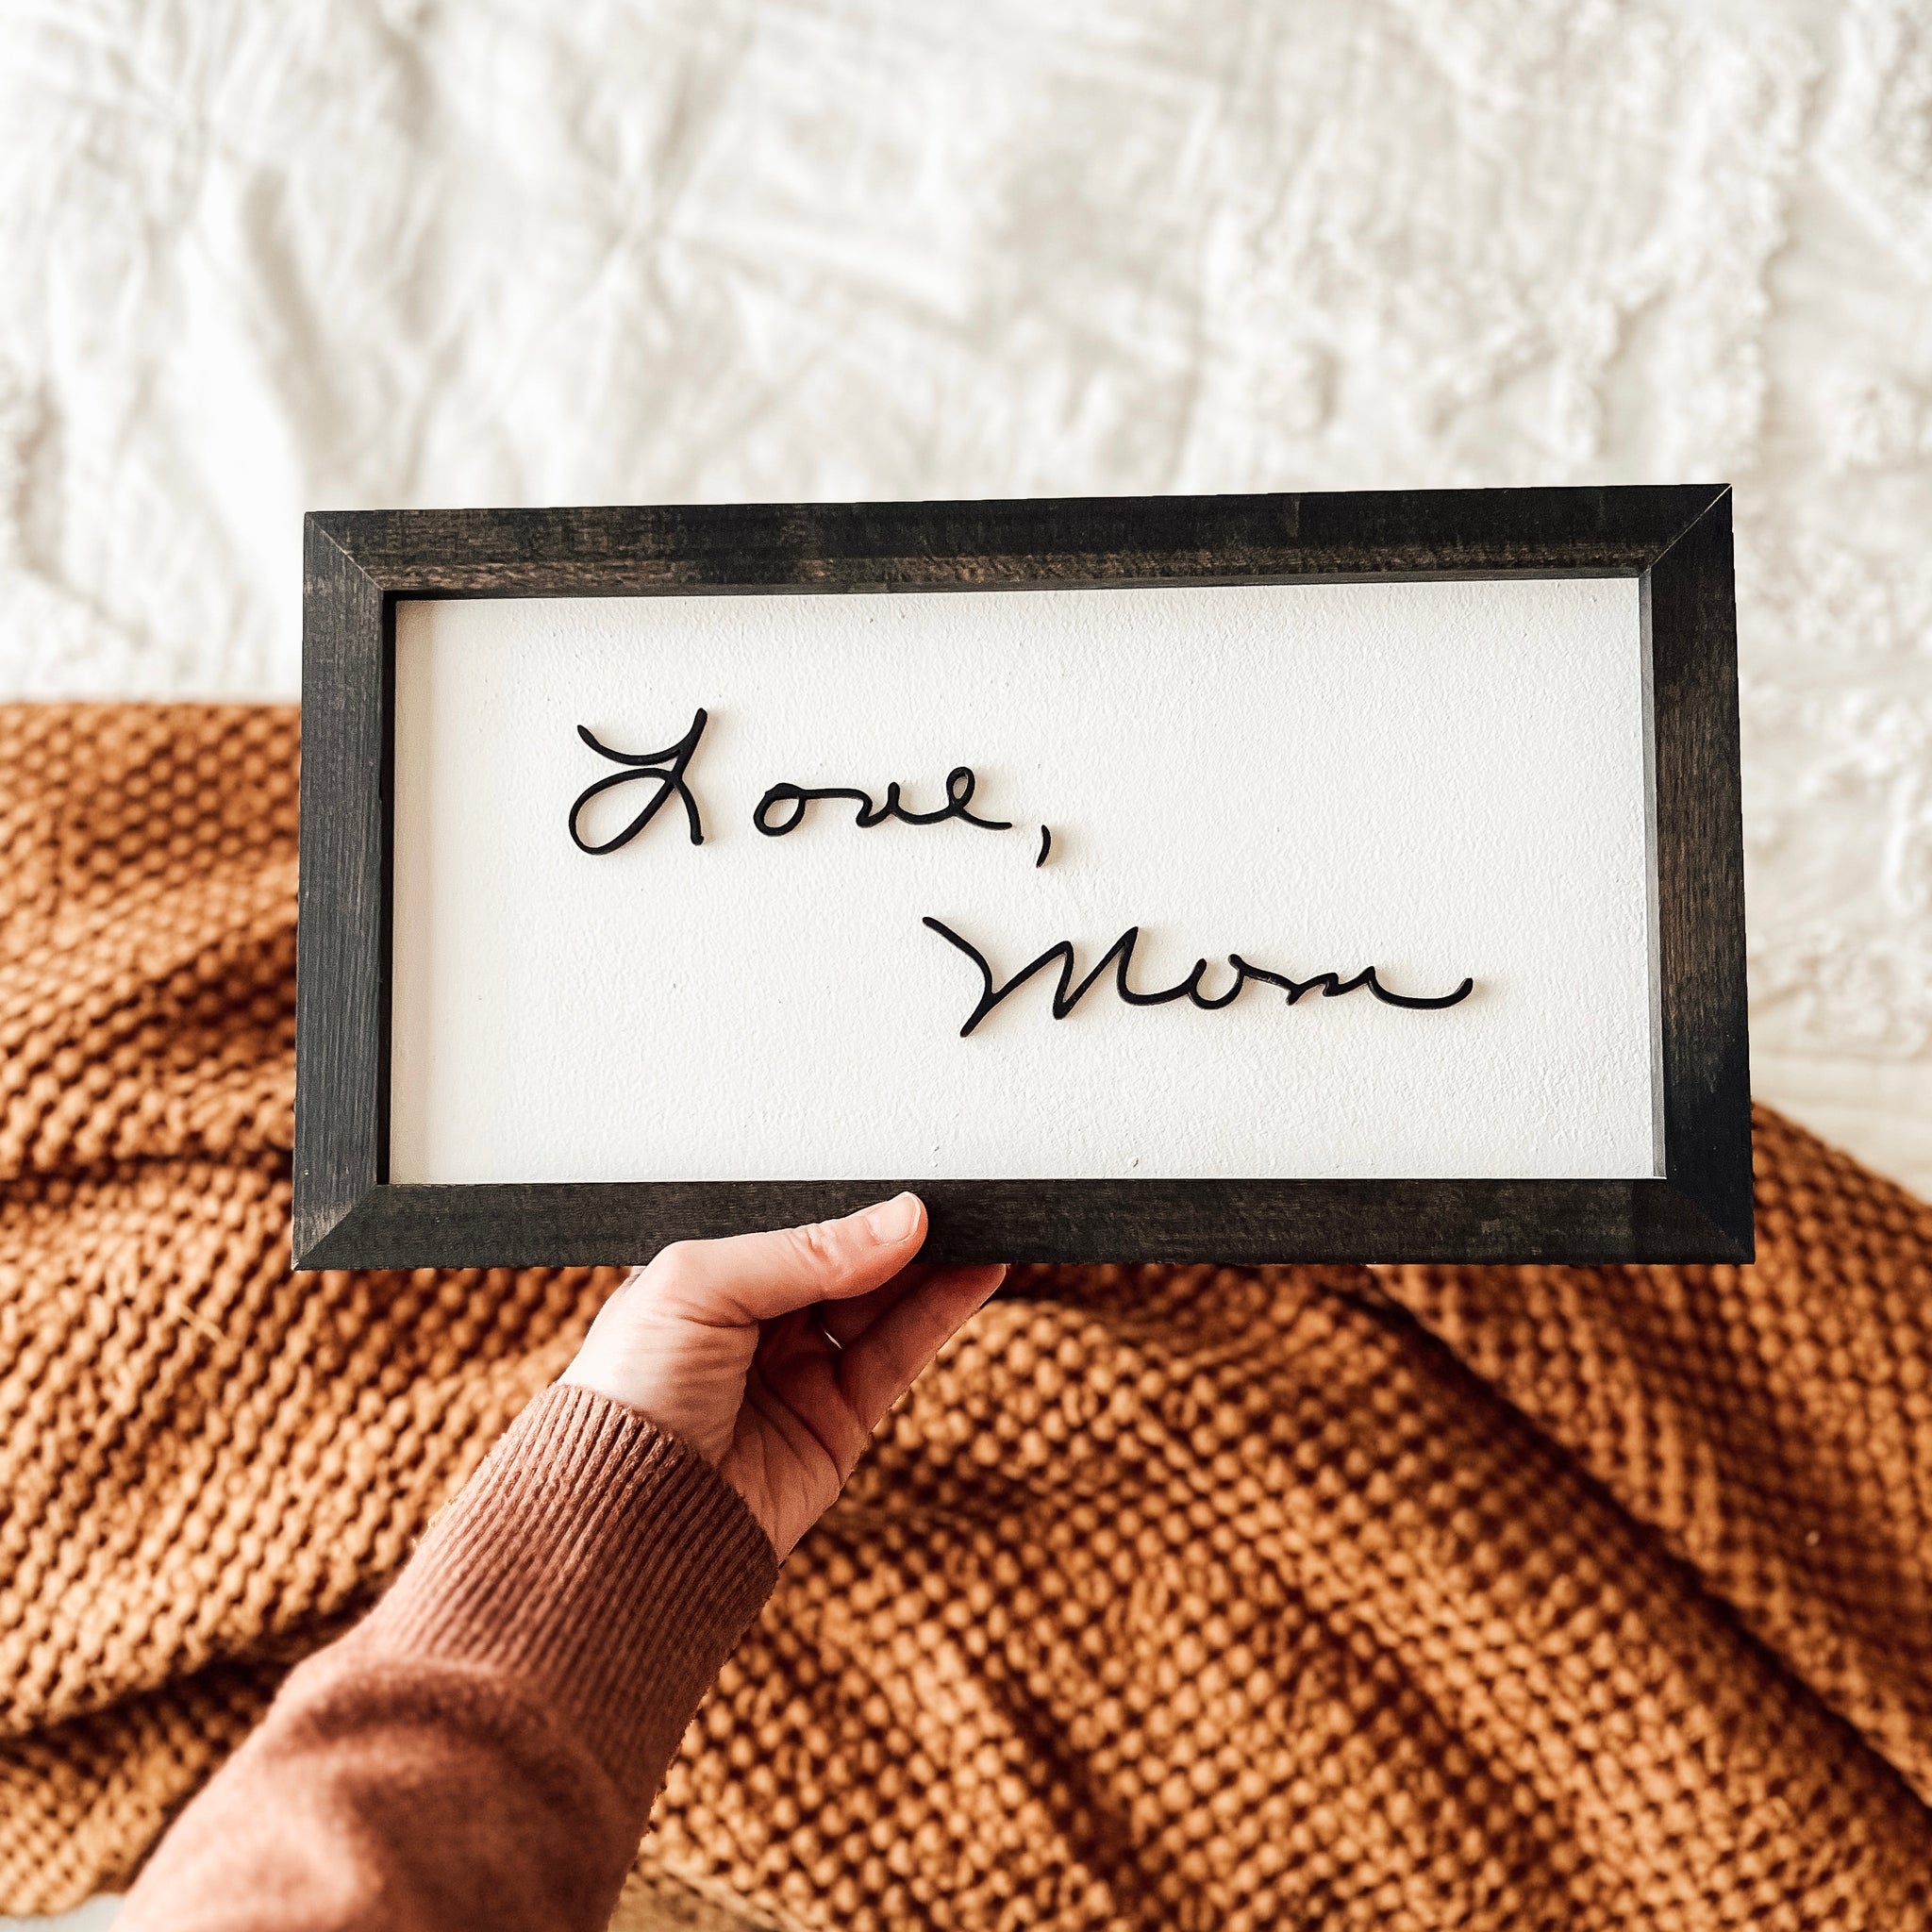 Love,
Mom